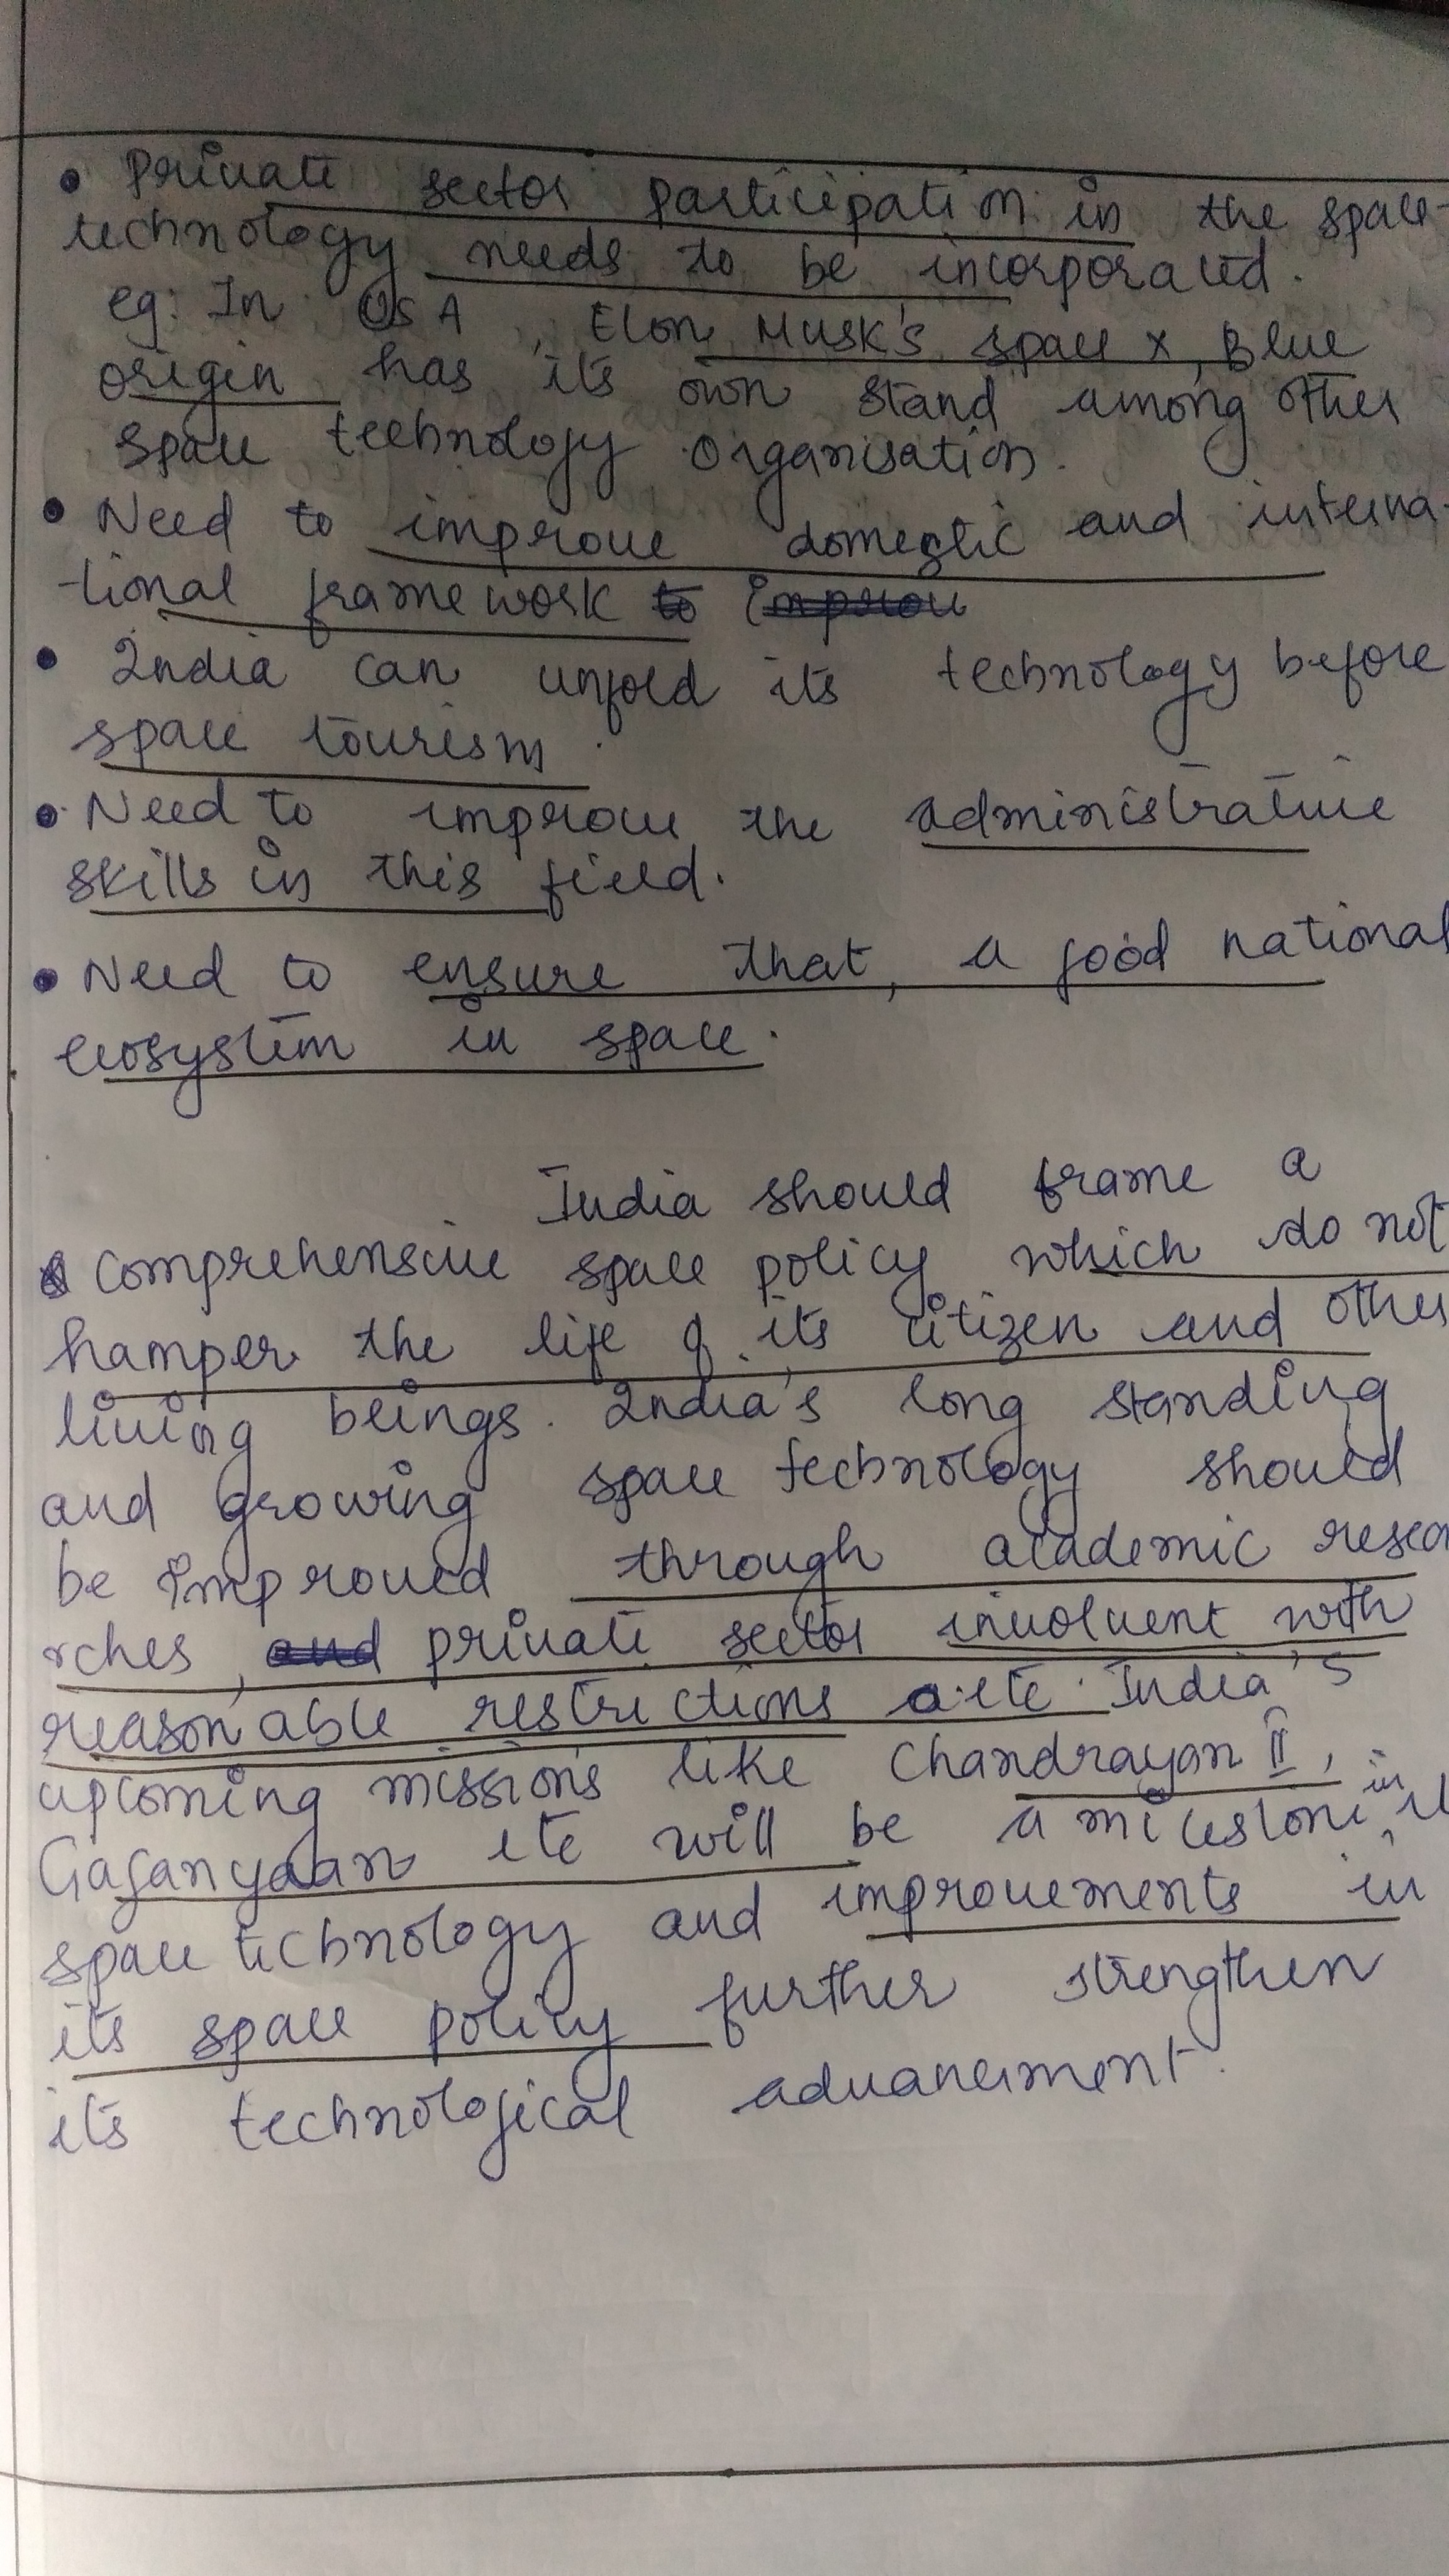 • Private sector participation in the space-
technology needs to be incorporated.
eg: In USA, Elon Musk's space X, Blue
origin has its own stand among other
space technology organisation.
• Need to improve domestic and interna-
-tional framework to improu
• India can unfold its technology before
space tourism.
• Need to improve the administrative
skills in this field.
• Need to ensure that, a good national
ecosystem in space.
India should frame a
comprehensive space policy which do not
hamper the life of its citizen and other
living beings. India's long standing
and growing space technology should
be improved through academic resea
rches, and private sector involvent with
reasonable restrictions etc. India's
upcoming missions like Chandrayan II,
Gaganyaan etc will be a milestone in
space technology and improvements in
its space policy further strengthen
its technological advancement.